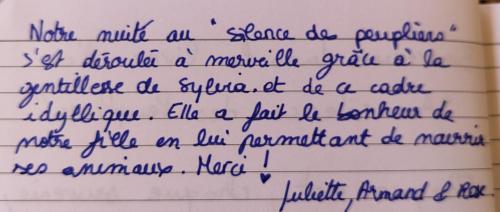 Notre nuité au "silence des peupliers"
s'est déroulée à merveille grâce à la
gentillesse de Sylvia. et de ce cadre
idyllique. Elle a fait le bonheur de
notre fille en lui permettant de nourrir
ses animaux. Merci !
Juliette, Armand & Rose.